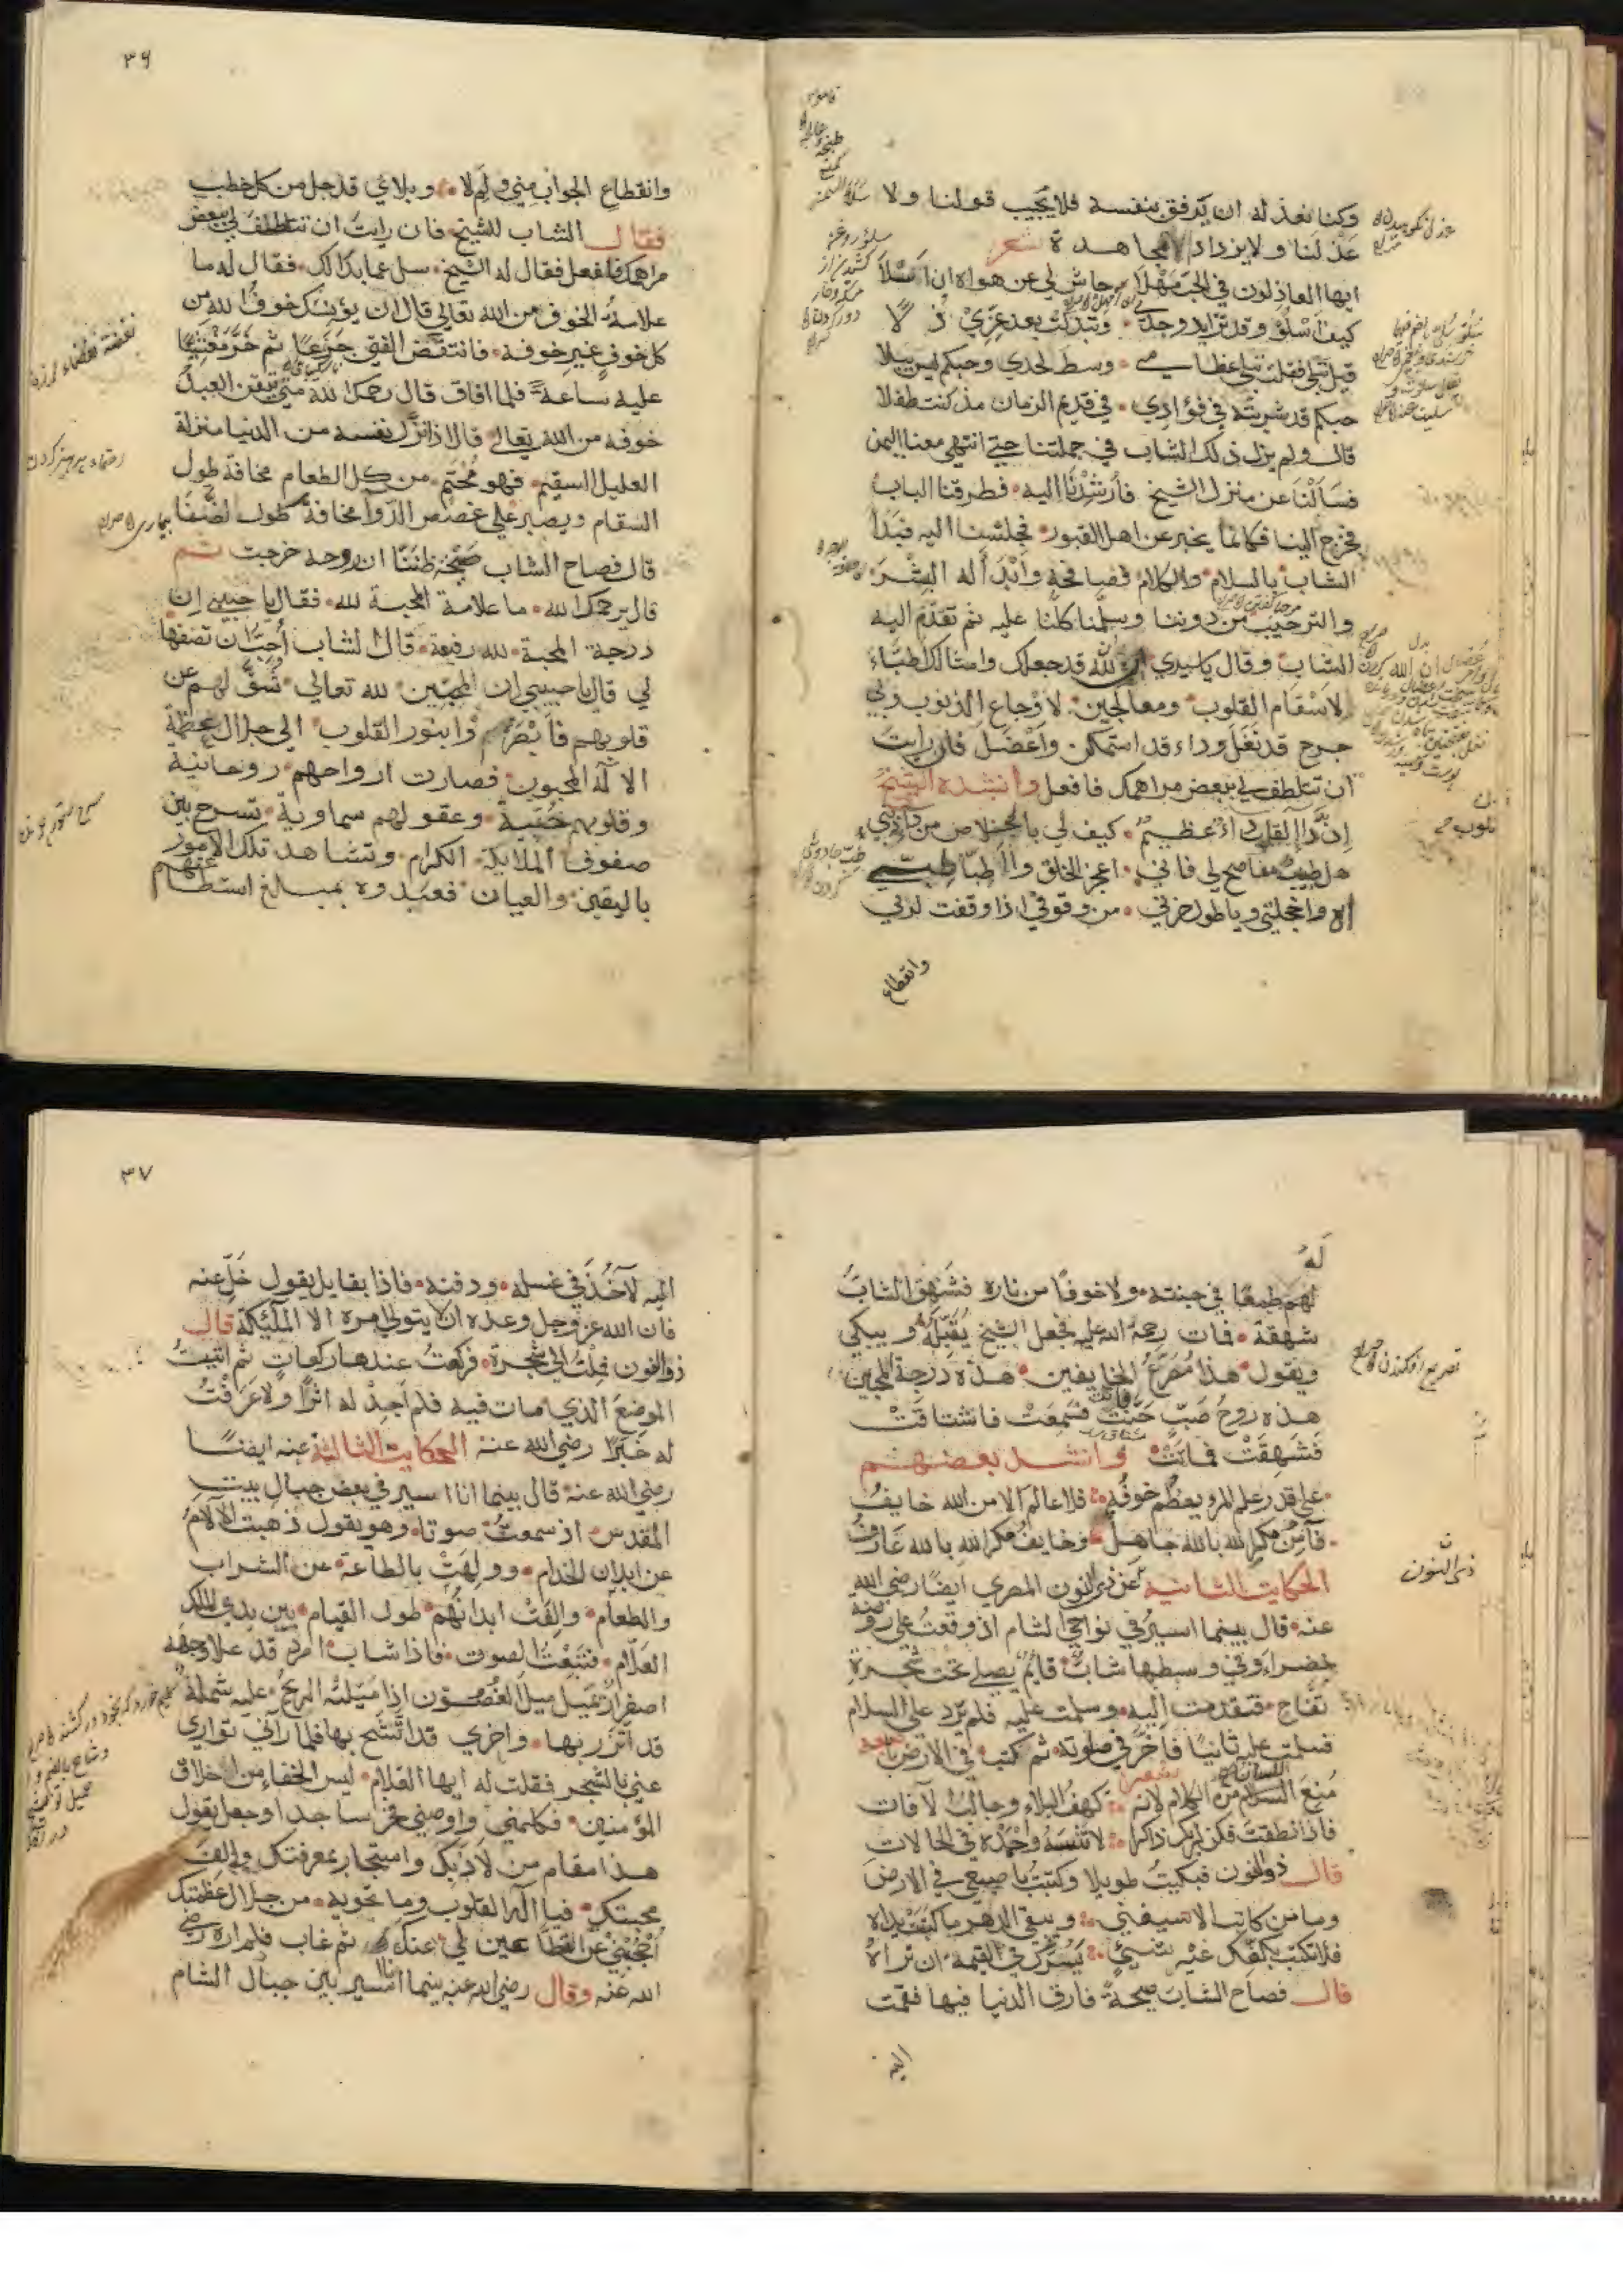 وكنا نعذله ان يرفق بنفسه فلا يجيب قولنا ولا
عذلنا ولا يزداد الا مجاهدة شعر
ايها العاذلون في الحب مهلا حاش لي عن هواه ان اتسلا
كيف اسلو وقد تزايد وجدي وتبدلت بعد عزي ذلا
قيل تبلى فقلت تبلى عظامي وسط لحدي وحبكم ليس يبلا
حبكم قد شربته في فؤادي في قديم الزمان مذ كنت طفلا
قال ولم يزل ذلك الشاب في جملتنا حتى انتهى معنا اليمن
فسألنا عن منزل الشيخ فأرشدنا اليه فطرقنا الباب
فخرج الينا فكانما يخبر عن اهل القبور فجلسنا اليه فبدأ
الشاب بالسلام والكلام فصافحه وأبدأ له البشر
والترحيب من دوننا وسلمنا كلنا عليه ثم تقدم اليه
الشاب وقال يا سيدي ان الله قد جعلك وامثالك اطباء
لاسقام القلوب ومعالجين لاوجاع الذنوب وبي
جرح قد نغل وداء قد استمكن واعضل فان رايت
ان تتلطف لي ببعض مراهمك فافعل وانشده الشيخ
ان داء القلب داء عظيم كيف لي بالخلاص من داء ذنبي
هل طبيب مناصح لي فاني اعجز الخلق والاطبا طبي
اه واخجلتي ويا طول حزني من وقوفي اذا وقفت لربي
وانقطاع
٣٦
وانقطاع الجواب مني ولم لا وبلائي قد جل من كل خطب
فقال الشاب للشيخ فان رايت ان تتلطف لي ببعض
مراهمك فافعل فقال له الشيخ سل عما بدا لك فقال له ما
علامة الخوف من الله تعالى قال ان يؤمنك خوف الله من
كل خوف غير خوفه فانتفض الفتى جزعا ثم خر مغشيا
عليه ساعة فلما افاق قال رحمك الله متى يتيقن العبد
خوفه من الله تعالى قال اذا نزل نفسه من الدنيا منزلة
العليل السقيم فهو محتم من كل الطعام مخافة طول
السقام ويصبر على غصص الدوا مخافة طول الضنا
قال فصاح الشاب صيحة ظننا ان روحه خرجت ثم
قال يرحمك الله ما علامة المحبة لله فقال يا حبيبي ان
درجة المحبة لله رفيعة قال الشاب أحب ان تصفها
لي قال يا حبيبي ان المحبين لله تعالى شق لهم عن
قلوبهم فابصروا بنور القلوب الى جلال عظمة
الاله المحبوب فصارت ارواحهم روحانية
وقلوبهم حجبية وعقولهم سماوية تسرح بين
صفوف الملايكة الكرام وتشاهد تلك الامور
باليقين والعيان فعبدوه بمبالغ استطاعتهم
له
لهم طمعا في جنته ولا خوفا من ناره فشهق الشاب
شهقة فمات رحمة الله عليه فجعل الشيخ يقبله ويبكي
ويقول هذا مصرع الخايفين هذه درجة المحبين
هذه روح صب حنت فسمعت فاشتاقت
فشهقت فماتت وانشد بعضهم
على قدر علم المرء يعظم خوفه فلا عالم الا من الله خايف
فآمن مكر الله بالله جاهل وخايف مكر الله بالله عارف
الحكايت الثانية عن ذي النون المصري ايضا رضي الله
عنه قال بينما اسير في نواحي الشام اذ وقعت على روضة
خضراء وفي وسطها شاب قايم يصلي تحت شجرة
تفاح فتقدمت اليه وسلمت عليه فلم يرد علي السلام
فسلمت عليه ثانيا فاخر في صلوته ثم كتب في الارض باصبعه
شعر
منع اللسان من الكلام لانه كهف البلاء وجالب الآفات
فاذا نطقت فكن لربك ذاكرا لا تنسه واحمده في الحالات
قال ذو النون فبكيت طويلا وكتبت باصبعي في الارض
وما من كاتب الا سيفنى ويبقي الدهر ما كتبت يداه
فلا تكتب بكفك غير شيء يسرك في القيمة ان تراه
قال فصاح الشاب صيحة فارق الدنيا فيها فقمت
اليه
ذي النون
٣٧
اليه لآخذ في غسله ودفنه فاذا بقايل يقول خل عنه
فان الله عز وجل وعده ان لا يتولى امره الا الملئكة قال
ذو النون فملت الى شجرة فركعت عندها ركعات ثم اتيت
الموضع الذي مات فيه فلم اجد له اثرا ولا عرفت
له خبرا رضي الله عنه الحكايت الثالثة عنه ايضا
رضي الله عنه قال بينما انا اسير في بعض جبال بيت
المقدس اذ سمعت صوتا وهو يقول ذهبت الآلام
عن ابدان الخدام وولهت بالطاعة عن الشراب
والطعام والفت ابدانهم طول القيام بين يدي الملك
العلام فتبعت الصوت فاذا شاب امرد قد علا وجهه
اصفرار يميل ميل الغصون اذا ميلته الريح عليه شملة
قد اتزر بها واخرى قد اتشح بها فلما رآني توارى
عني بالشجر فقلت له ايها الغلام ليس الخفاء من اخلاق
المؤمنين فكلمني واوصني فخر ساجدا وجعل يقول
هذا مقام من لاذ بك واستجار بمعرفتك والف
محبتك فيا اله القلوب وما تحويه من جلال عظمتك
احجبني عن القطاعين لي عنك ثم غاب فلم اره رضي
الله عنه وقال رضي الله عنه بينما انا اسير بين جبال الشام